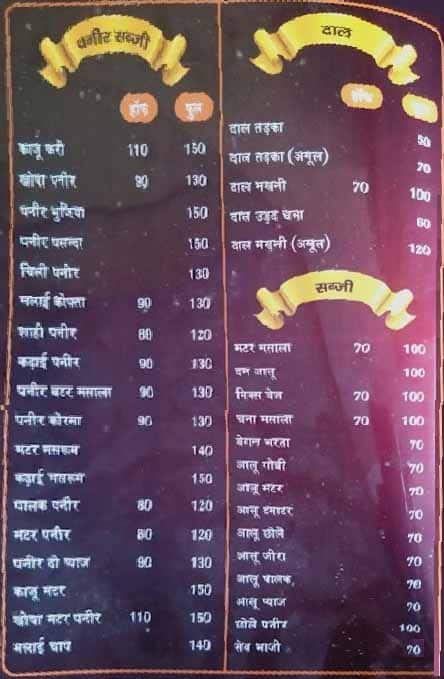 पनीर सब्जी
हॉफ फुल
काजू करी 110 150
खोवा पनीर 90 130
पनीर भुजिया 150
पनीर पसन्दा 150
चिली पनीर 130
मलाई कोफ्ता 90 130
शाही पनीर 80 120
कढ़ाई पनीर 90 130
पनीर बटर मसाला 90 130
पनीर कोरमा 90 130
मटर मसरूम 140
कढ़ाई मसरूम 150
पालक पनीर 80 120
मटर पनीर 80 120
पनीर दो प्याज 90 130
काजू मटर 150
खोवा मटर पनीर 110 150
मलाई चाप 140
दाल
हॉफ
दाल तड़का 50
दाल तड़का (अमूल) 70
दाल मखनी 70 100
दाल उड़द चना 60
दाल मखनी (अमूल) 120
सब्जी
मटर मसाला 70 100
दम आलू 100
मिक्स वेज 70 100
चना मसाला 70 100
बैगन भरता 70
आलू गोबी 70
आलू मटर 70
आलू टमाटर 70
आलू छोले 70
आलू जीरा 70
आलू पालक 70
आलू प्याज 70
छोले पनीर 100
सेव भाजी 70